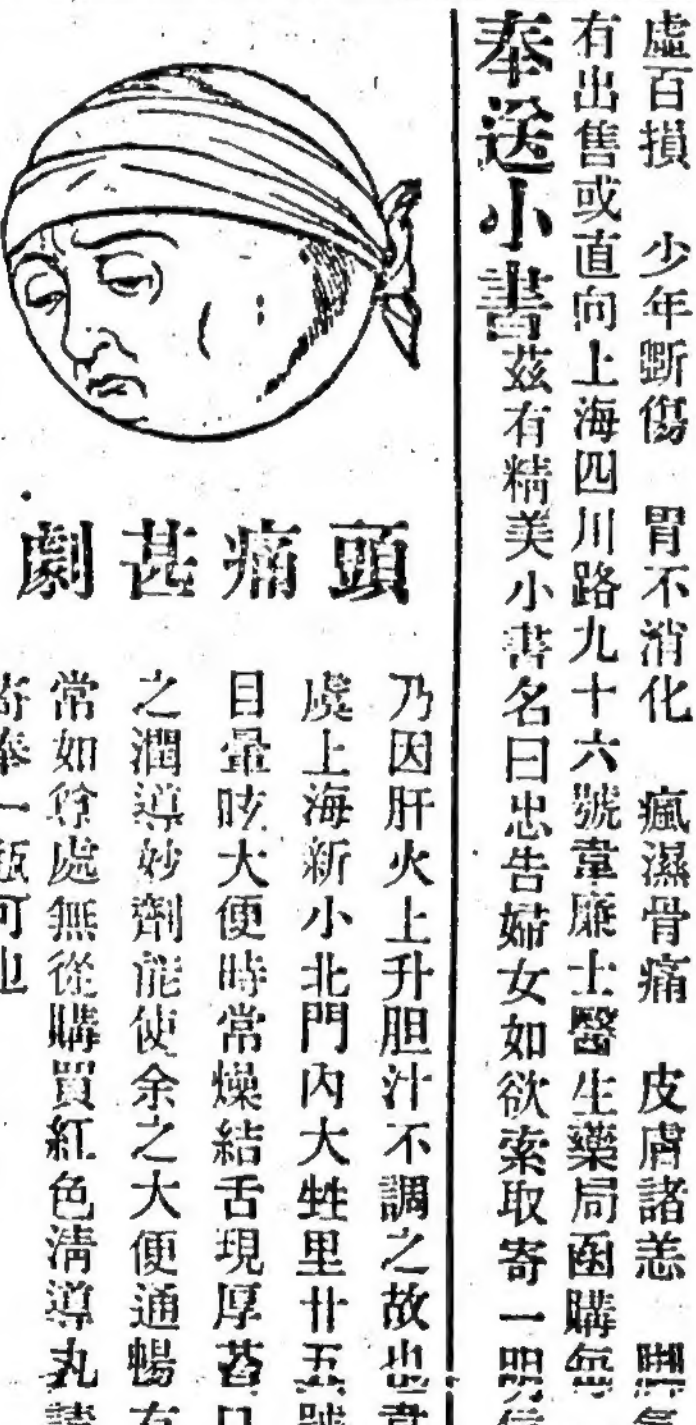 虛百損 少年斲傷 胃不消化 瘋濕骨痛 皮膚諸恙 脚氣
有出售或直向上海四川路九十六號韋廉士醫生藥局函購每
奉送小書茲有精美小書名曰忠告婦女如欲索取寄一明信
頭痛甚劇
乃因肝火上升胆汁不調之故也韋
處上海新小北門內大甡里廿五號
目暈眩大便時常燥結舌現厚苔口
之潤導妙劑能使余之大便通暢有
常如貴處無從購買紅色清導丸請
寄奉一瓶可也